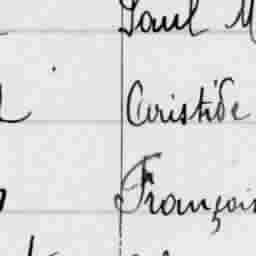 Paul M
Aristide
François